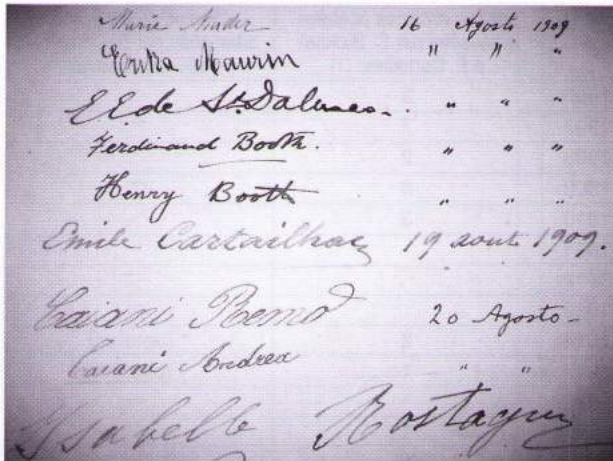 Marie Mader 16 Agosto 1909
Erika Maurin " " "
E. E. de St. Dalmeo. " " "
Ferdinand Booth. " " "
Henry Booth " " "
Emile Cartailhac 19 aout 1909.
Caiani Remo 20 Agosto -
Caiani Andrea " "
Isabelle Rostagny